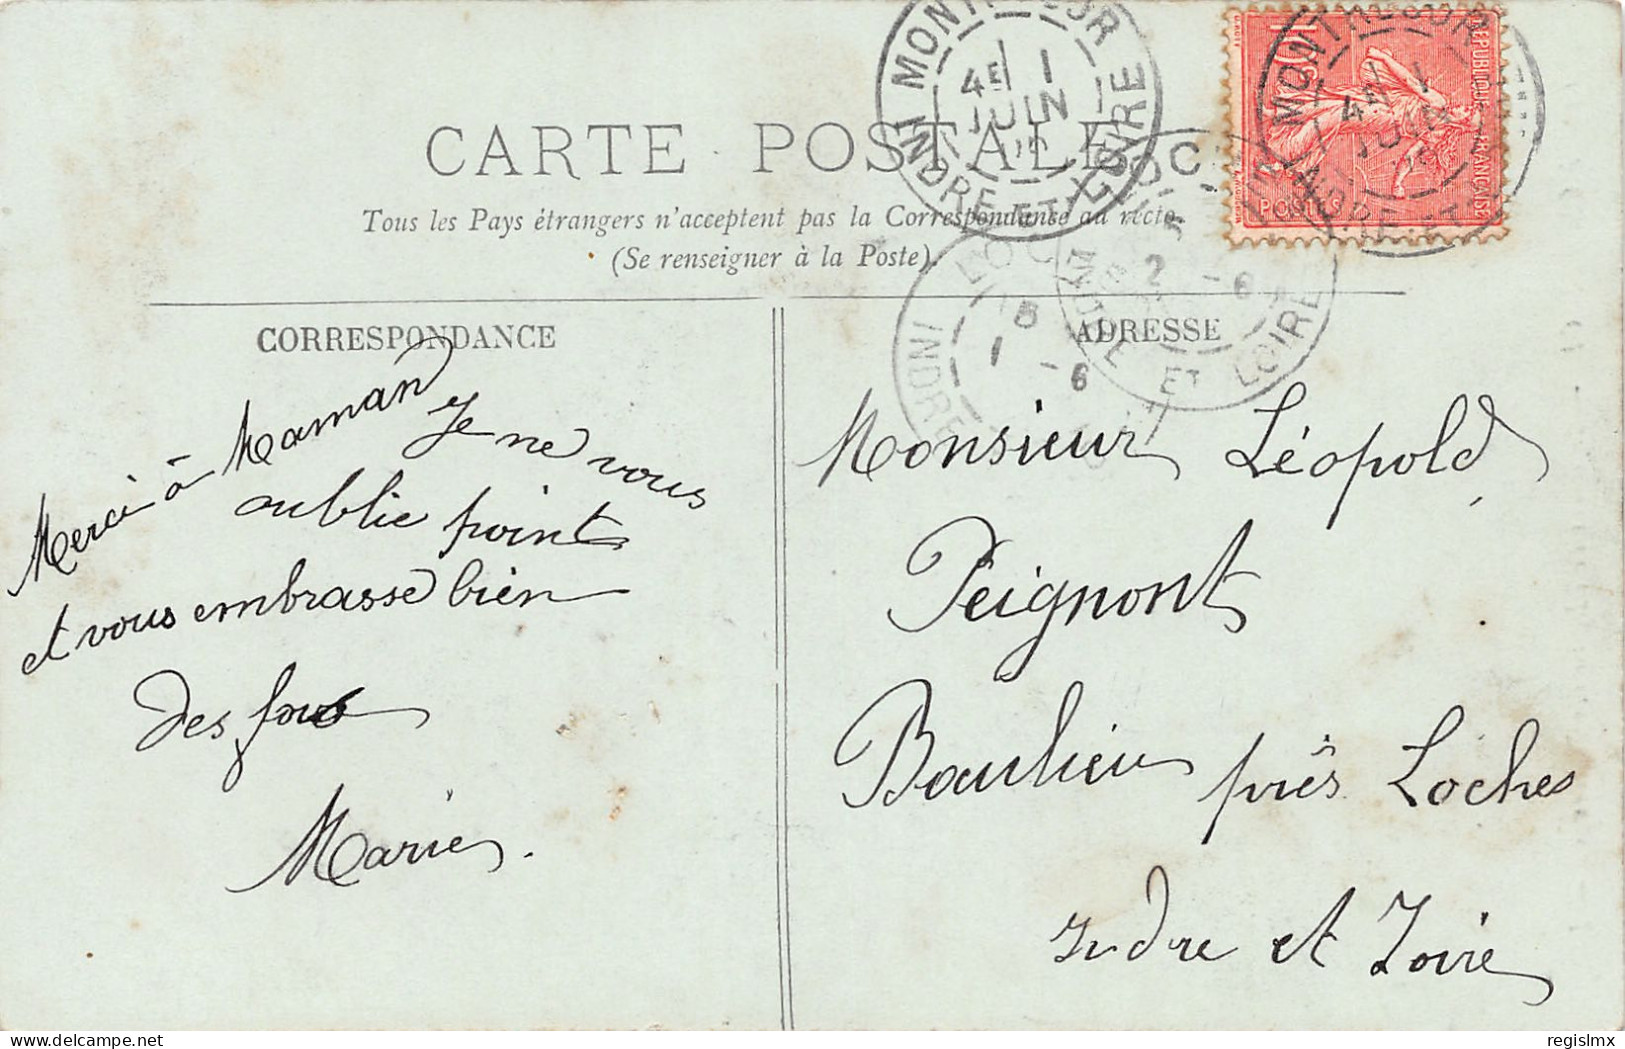 CARTE POSTALE
Tous les Pays étrangers n'acceptent pas la Correspondance au recto.
(Se renseigner à la Poste).
CORRESPONDANCE
Merci à Maman
Je ne vous
oublie point
et vous embrasse bien
des fois
Marie.
ADRESSE
Monsieur Léopold
Peignont
Beaulieu près Loches
Indre et Loire
MONTRESOR
4E 1
JUIN
INDRE ET LOIRE
RÉPUBLIQUE FRANÇAISE
10c
POSTES
MONTRESOR
4E 1
JUIN
INDRE ET
2 -6
INDRE ET LOIRE
1 -6
INDRE
delcampe.net
regislmx